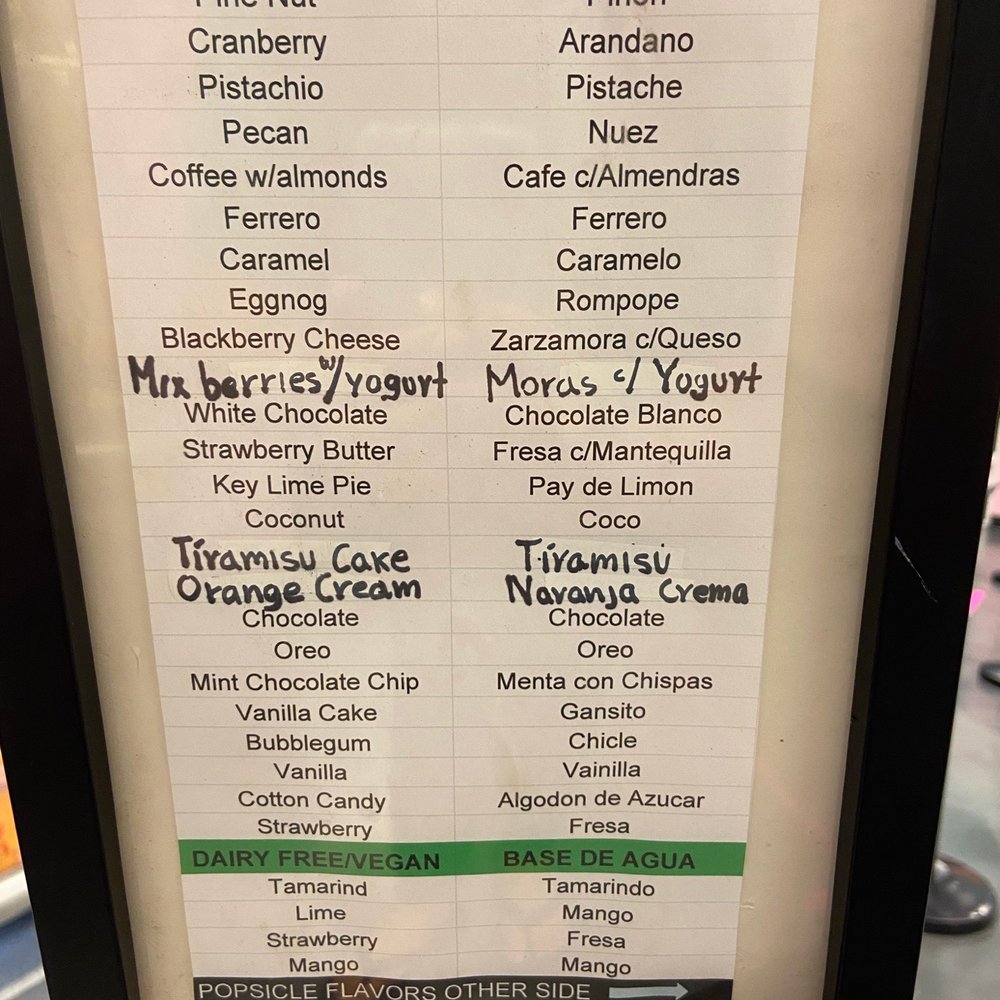 Pine Nut Piñon
Cranberry Arandano
Pistachio Pistache
Pecan Nuez
Coffee w/almonds Cafe c/Almendras
Ferrero Ferrero
Caramel Caramelo
Eggnog Rompope
Blackberry Cheese Zarzamora c/Queso
Mix berries w/yogurt Moras c/ Yogurt
White Chocolate Chocolate Blanco
Strawberry Butter Fresa c/Mantequilla
Key Lime Pie Pay de Limon
Coconut Coco
Tiramisu Cake Tiramisú
Orange Cream Naranja Crema
Chocolate Chocolate
Oreo Oreo
Mint Chocolate Chip Menta con Chispas
Vanilla Cake Gansito
Bubblegum Chicle
Vanilla Vainilla
Cotton Candy Algodon de Azucar
Strawberry Fresa
DAIRY FREE/VEGAN BASE DE AGUA
Tamarind Tamarindo
Lime Mango
Strawberry Fresa
Mango Mango
POPSICLE FLAVORS OTHER SIDE